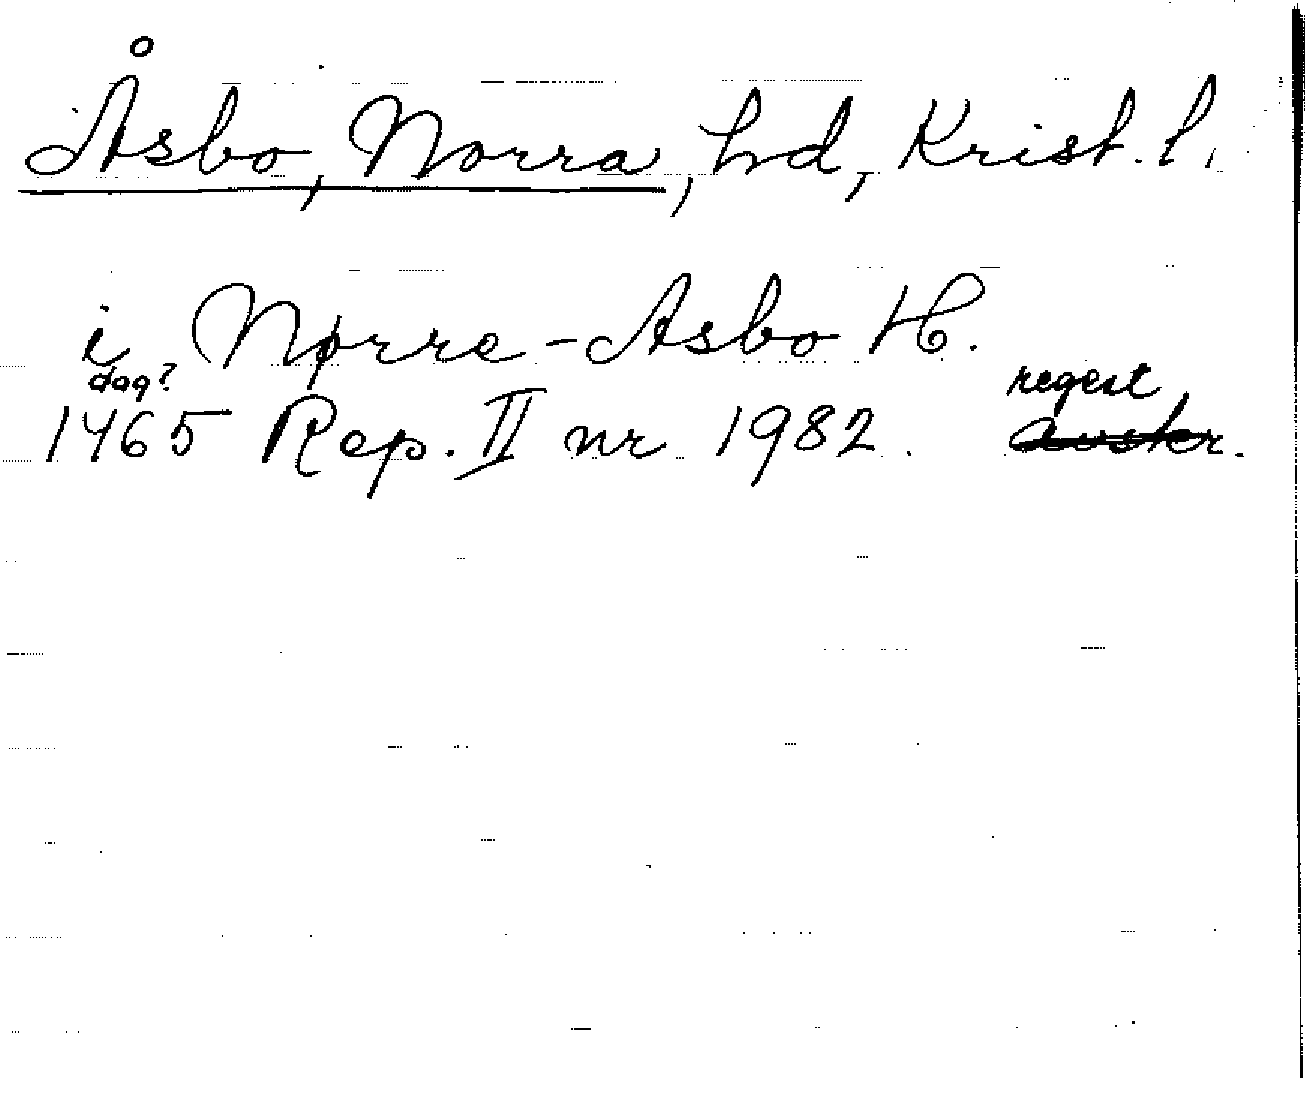 Åsbo, Norra, hd, Krist. l.
i Nørre-Asbo H.
dag? regest
1465 Rep. II nr 1982. avskr.